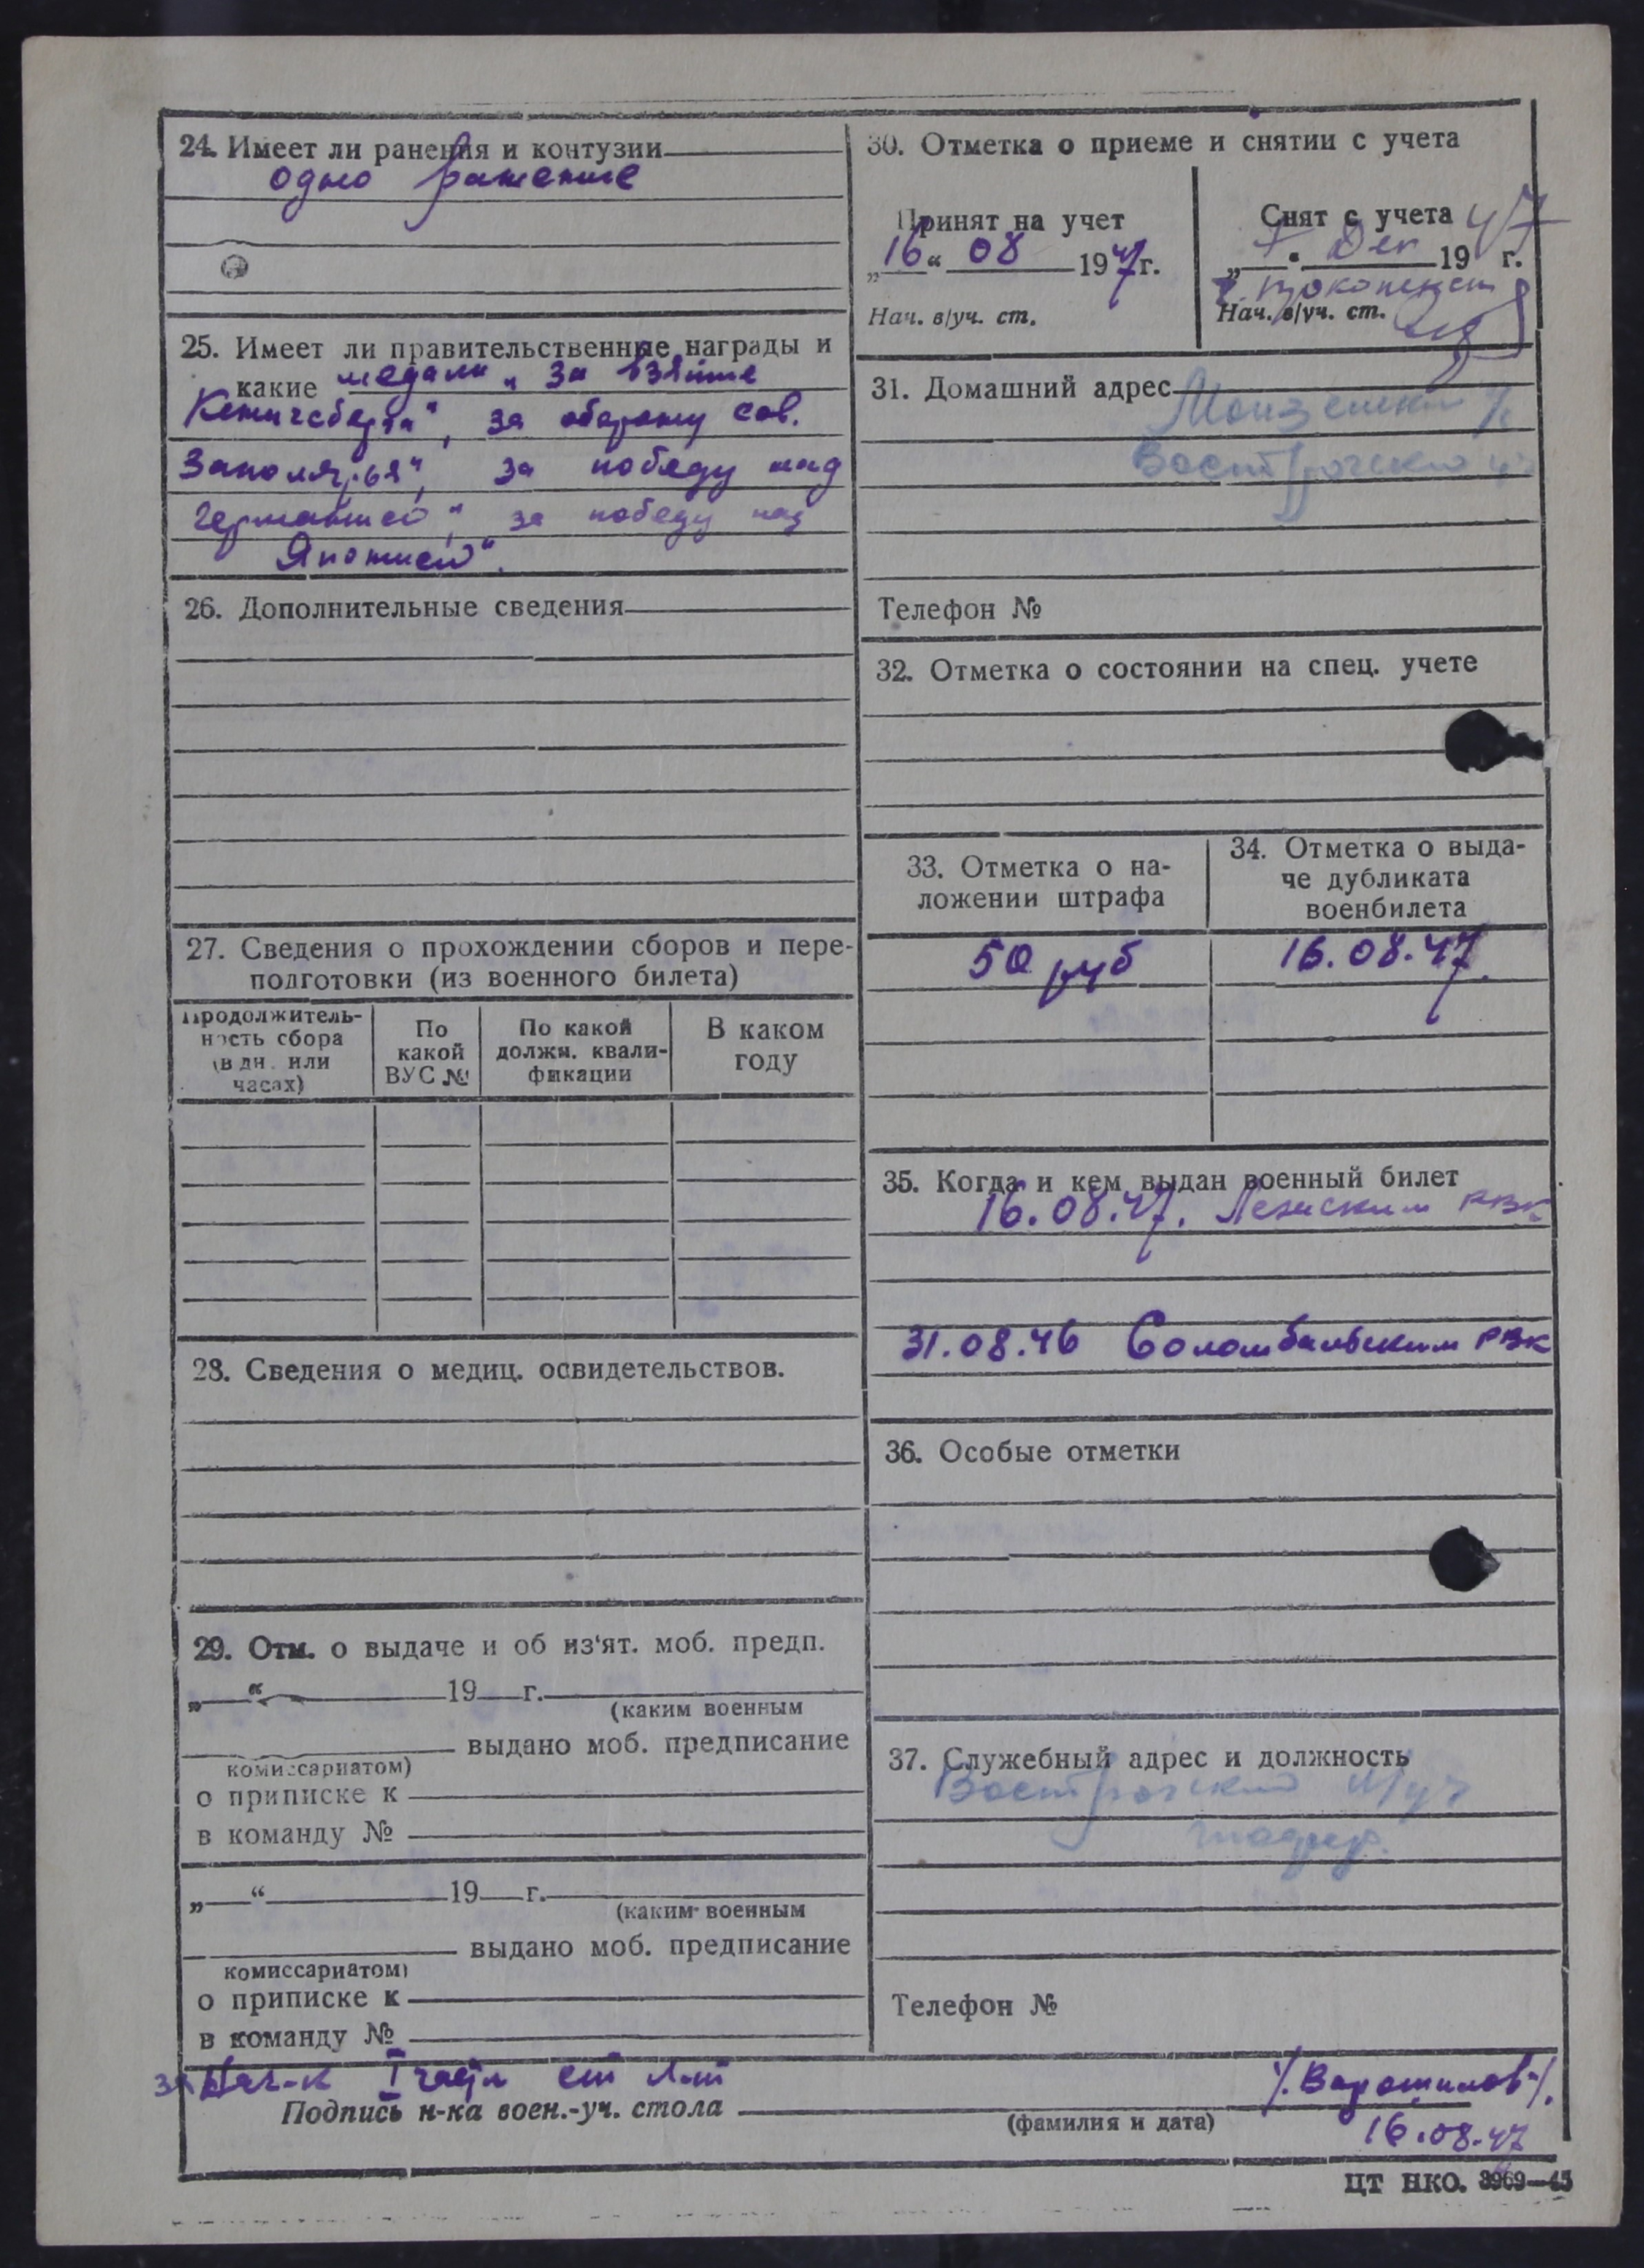 24. Имеет ли ранения и контузии
одно ранение
25. Имеет ли правительственные награды и
какие медали „За взятие
Кенигсберга", за оборону сов.
Заполярья", за победу над
Германией", за победу над
Японией".
26. Дополнительные сведения
27. Сведения о прохождении сборов и пере-
подготовки (из военного билета)
Продолжитель-
ность сбора
(в дн. или
часах)
По
какой
ВУС №
По какой
должн. квали-
фикации
В каком
году
28. Сведения о медиц. освидетельствов.
29. Отм. о выдаче и об из'ят. моб. предп.
„ “ 19 г.
(каким военным
выдано моб. предписание
комиссариатом)
о приписке к
в команду №
„ “ 19 г.
(каким военным
выдано моб. предписание
комиссариатом)
о приписке к
в команду №
30. Отметка о приеме и снятии с учета
Принят на учет
„16“ 08 1947г.
Нач. в/уч. ст.
Снят с учета 47
„ “ Дек 19 г.
Нач. в/уч. ст.
31. Домашний адрес
Телефон №
32. Отметка о состоянии на спец. учете
33. Отметка о на-
ложении штрафа
50 руб
34. Отметка о выда-
че дубликата
военбилета
16.08.47.
35. Когда и кем выдан военный билет
16.08.47. Ленским РВК
31.08.46 Соломбальским РВК
36. Особые отметки
37. Служебный адрес и должность
Телефон №
За Нач-к I части ст л-т /. Ворошилов /.
Подпись н-ка воен.-уч. стола
(фамилия и дата)
16.08.47
ЦТ НКО. 3969—45